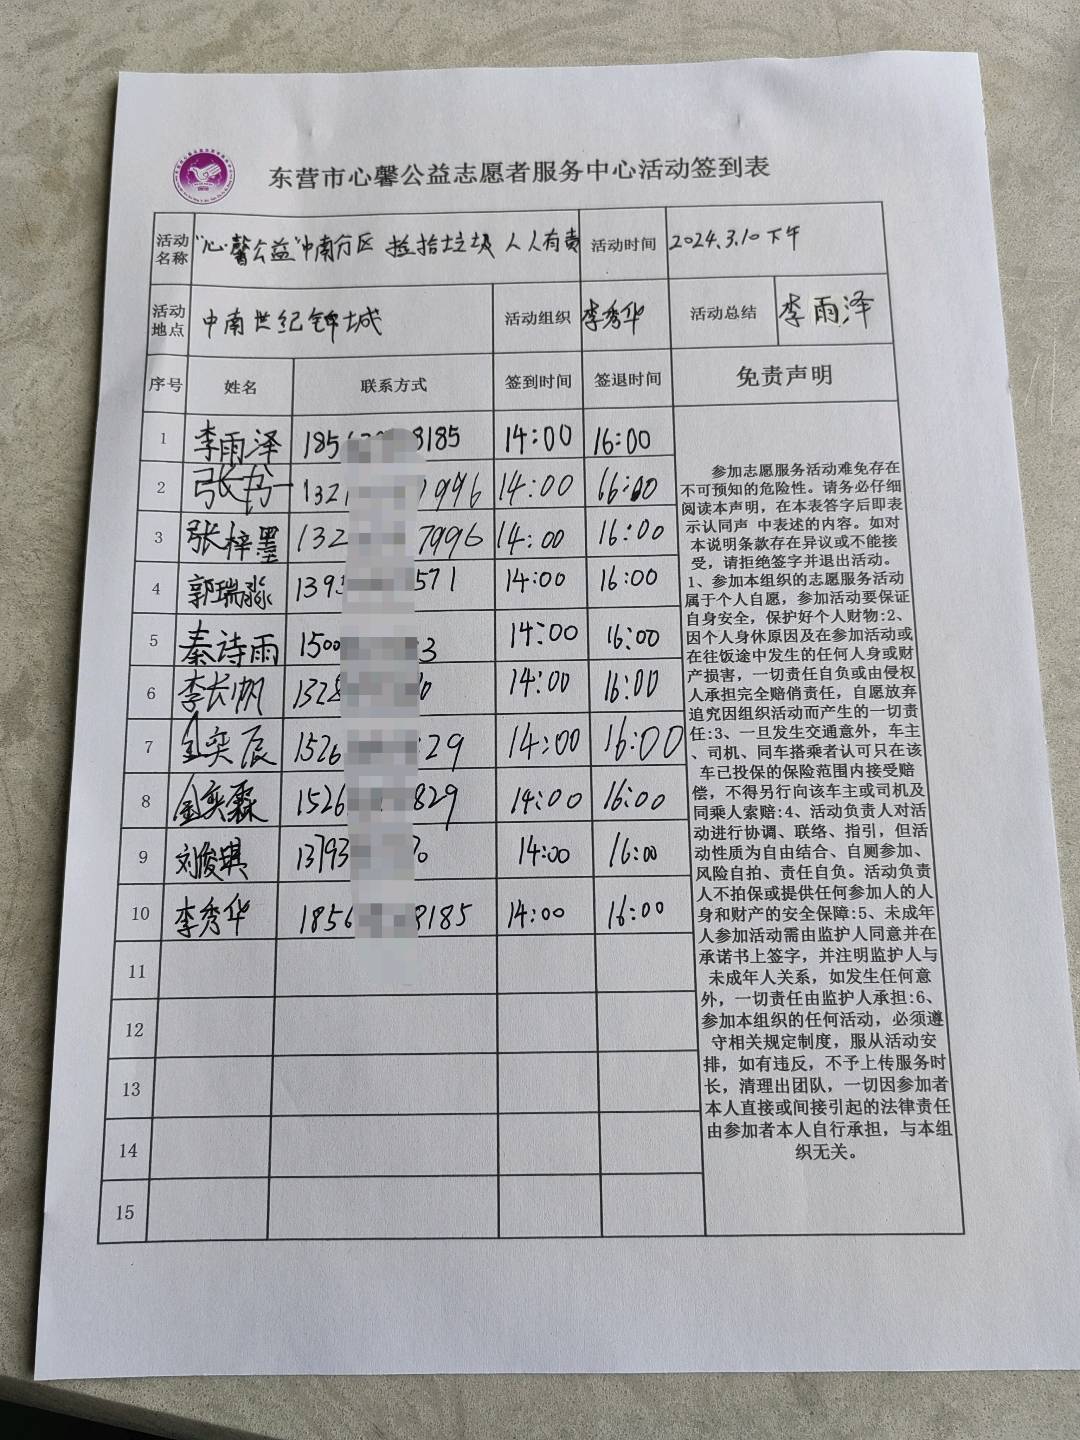 东营市心馨公益志愿者服务中心活动签到表
活动名称 "心馨公益"中南分区 捡拾垃圾 人人有责 活动时间 2024.3.10下午
活动地点 中南世纪锦城 活动组织 李秀华 活动总结 李雨泽
序号 姓名 联系方式 签到时间 签退时间 免责声明
1 李雨泽 185 8185 14:00 16:00
2 张书一 132 7996 14:00 16:00
3 张梓墨 132 7996 14:00 16:00
4 郭瑞淼 139 571 14:00 16:00
5 秦诗雨 1500 3 14:00 16:00
6 李长帆 1328 0 14:00 16:00
7 金奕辰 1526 29 14:00 16:00
8 金奕霖 1526 829 14:00 16:00
9 刘俊琪 13793 0 14:00 16:00
10 李秀华 1856 8185 14:00 16:00
11
12
13
14
15
参加志愿服务活动难免存在
不可预知的危险性。请务必仔细
阅读本声明，在本表答字后即表
示认同声 中表述的内容。如对
本说明条款存在异议或不能接
受，请拒绝签字并退出活动。
1、参加本组织的志愿服务活动
属于个人自愿，参加活动要保证
自身安全，保护好个人财物:2、
因个人身休原因及在参加活动或
在往饭途中发生的任何人身或财
产损害，一切责任自负或由侵权
人承担完全赔俏责任，自愿放弃
追究因组织活动而产生的一切责
任:3、一旦发生交通意外，车主
、司机、同车搭乘者认可只在该
车已投保的保险范围内接受赔
偿，不得另行向该车主或司机及
同乘人索赔:4、活动负责人对活
动进行协调、联络、指引，但活
动性质为自由结合、自厕参加、
风险自拍、责任自负。活动负责
人不拍保或提供任何参加人的人
身和财产的安全保障:5、未成年
人参加活动需由监护人同意并在
承诺书上签字，并注明监护人与
未成年人关系，如发生任何意
外，一切责任由监护人承担:6、
参加本组织的任何活动，必须遵
守相关规定制度，服从活动安
排，如有违反，不予上传服务时
长，清理出团队，一切因参加者
本人直接或间接引起的法律责任
由参加者本人自行承担，与本组
织无关。